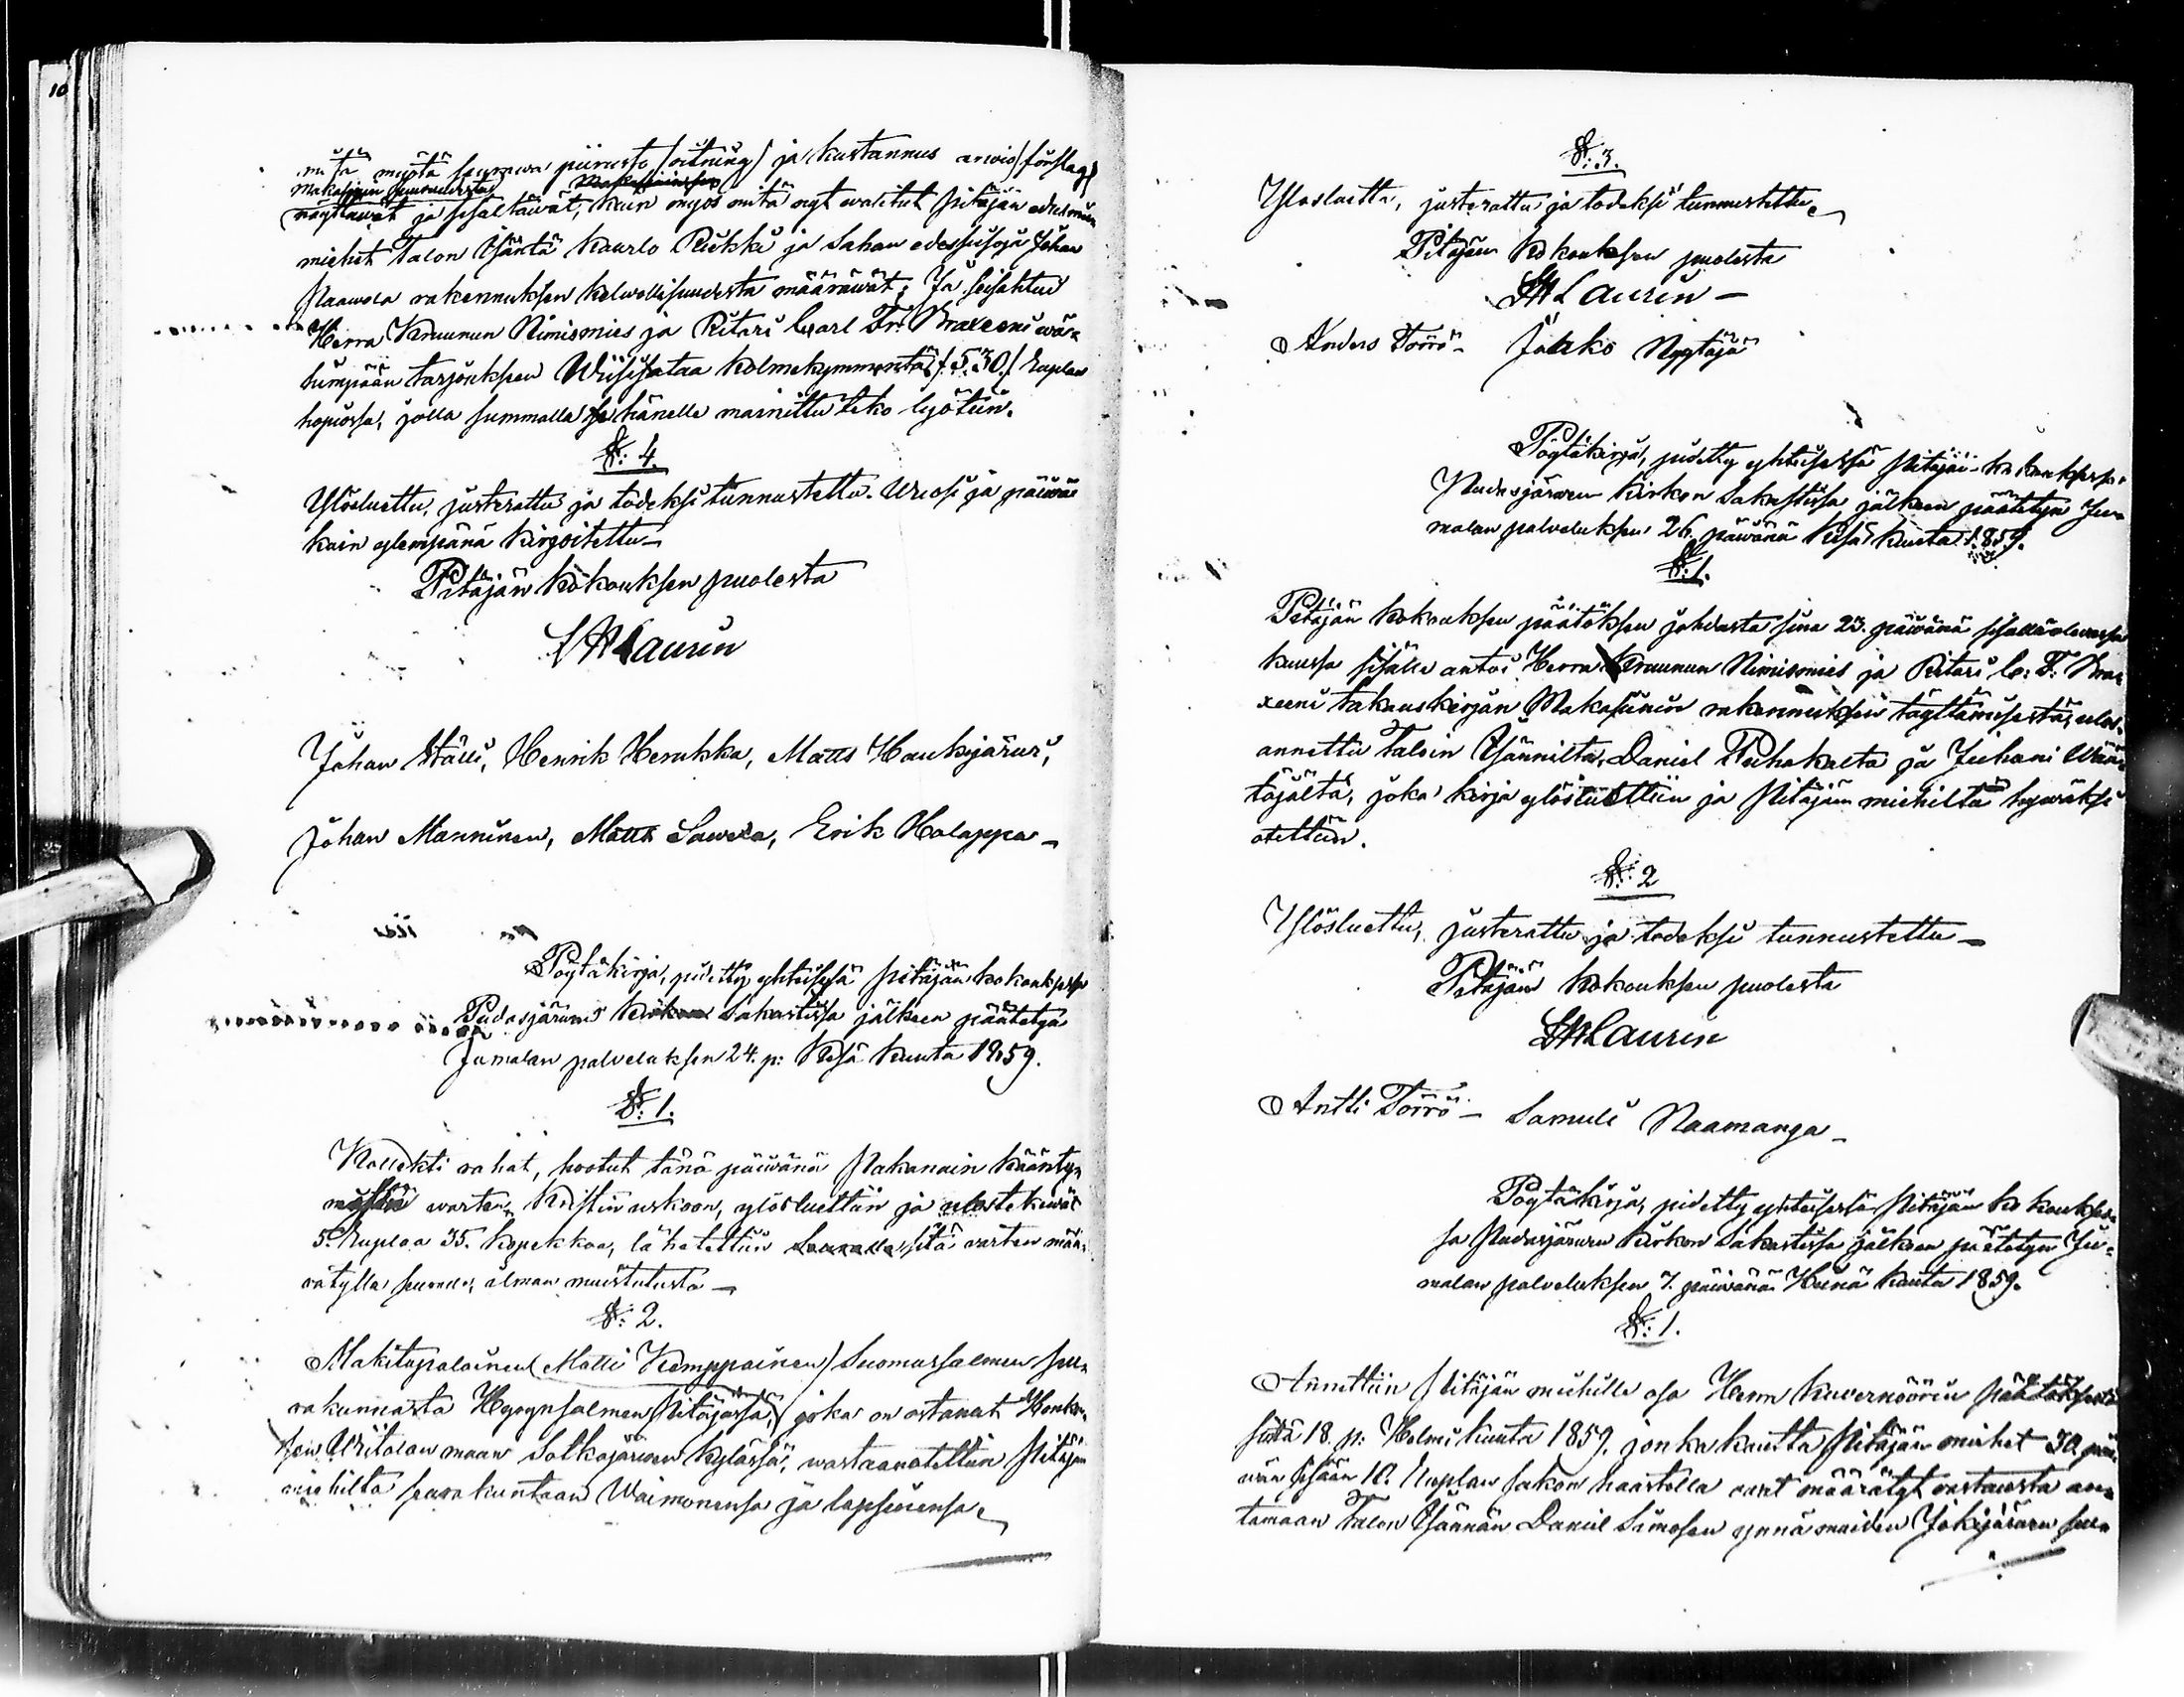 10
mitä myötä seurawa piirusto /ritning/ ja kustannus arwio /förslag/
Makasiinin suuruudesta
näyttäwät ja sisältäwät, kuin myös mitä nyt walitut Pitäjän edesmän
miehet Talon Isäntä Kaarlo Riekki ja Sahan edesseisoja Johan
Naawola rakennuksen kelwollisuudesta määräwät; Ja seisahtui
Herra Kruunun Nimismies ja Ritari Carl Fr. Braxeeni wii-
himpään tarjoukseen Wiisisataa kolmekymmentä /530/ Ruplaa
hopiossa, jolla summalla hänelle mainittu teko lyötiin.
§: 4.
Ylösluettu, justerattu ja todeksi tunnustettu. Wuosi ja päiwä
kuin ylempänä kirjoitettu_
Pitäjän kokouksen puolesta
LHLaurin
Johan Ställi, Henrik Herukka, Matts Haukijärwi,
Johan Manninen, Matts Sawela, Erik Halappa_
Pöytäkirja, pidetty yhteisesä Pitäjän kokouksesa
Pudasjärwen kirkon Sakastissa jälkeen päätetyn
Jumalan palweluksen 24. p: Kesä kuuta 1859.
§: 1.
Kollekti rahat, kootut tänä päiwänä Pakanain käänty-
mistä warten Kristin uskoon, ylösluettiin ja ulostekewä
5. Ruplaa 35. kopekkaa, lähetettiin sitä warten mää-
rätylle seuralle, ilman muistutusta_
§: 2.
Mäkitupalainen (Matti Kemppainen) Suomussalmen seu-
rakunnasta Hyrynsalmen Pitäjässä, joka on ostanut Honka-
sen Uritalon maan Sotkajärwen kylässä, wastaanotettiin Pitäjän
miehiltä seurakuntaan Waimonensa ja lapsinensa_
§: 3.
Ylösluettu, justerattu ja todeksi tunnustettu_
Pitäjän kokouksen puolesta
LHLaurin_
Anders Törrö_ Jaako Nyytäjä
Pöytäkirja, pidetty yhteisessä Pitäjän-kokouksessa
Pudasjärwen kirkon Sakastissa jälkeen päätetyn Ju-
malan palweluksen 26. päiwänä Kesä kuuta 1859.
§: 1.
Pitäjän kokouksen päätöksen johdosta sinä 23. päiwänä sisälläolewassa
kuussa sisälle antoi Herra Kruunun Nimismies ja Ritari C: F: Bra-
xeeni takauskirjan Makasiinin rakennuksen täyttämisestä, ulos-
annettu Taloin Isänniltä, Daniel Puhakalta ja Juhani Wään-
täjältä, joka kirja ylösluettiin ja Pitäjän miehiltä hywäksi
otettiin.
§: 2
Ylösluettu, justerattu ja todeksi tunnustettu_
Pitäjän kokouksen puolesta
LHLaurin
Antti Törrö_ Samuli Naamanga_
Pöytäkirja, pidetty yhteisessä Pitäjän kokoukses-
sa Pudasjärwen kirkon Sakastissa jälkeen päätetyn Ju-
malan palweluksen 7. päiwänä Heinä kuuta 1859.
§: 1.
Annettiin Pitäjän miehille osa Herra Kuvernöörin päätöksestä
siitä 18. p: Helmi kuuta 1859. jonka kautta Pitäjän miehet 30 päi-
wän sisään 10. Ruplan sakon haastolla owat määrätyt wastausta an-
tamaan Talon Isännän Daniel Simosen ynnä muiden Jokijärwen seu-